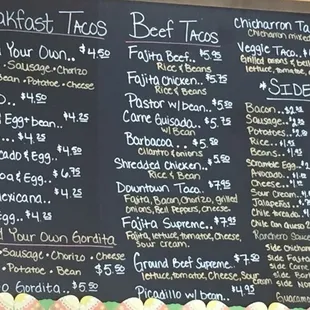 akfast Tacos
d Your Own.. $4.50
Sausage • Chorizo
Bean • Potatoe • Cheese
$4.50
Egg + bean.. $4.25
$4.25
cado & Egg.. $4.50
oa & Egg.. $6.75
exicana.. $4.25
Egg.. $4.25
d Your Own Gordita
Sausage • Chorizo • Cheese
• Potatoe • Bean $5.50
o Gordita.. $5.50
Beef Tacos
Fajita Beef.. $5.95
Rice & Beans
Fajita Chicken.. $5.75
Rice & Beans
Pastor w/ bean.. $5.50
Carne Guisada.. $5.75
w/ Bean
Barbacoa.. $5.50
Cilantro & onions
Shredded Chicken.. $5.50
Rice & Bean
Downtown Taco.. $7.95
Fajita, Bacon, Chorizo, grilled
Onions, Bell Peppers, Cheese
Fajita Supreme.. $7.95
Fajita, lettuce, tomatoe, Cheese,
Sour cream
Ground Beef Supreme.. $7.50
lettuce, tomatoe, Cheese, Sour
Cream
Picadillo w/ bean.. $4.95
Chicharron Ta
Chicharron mixed
Veggie Taco..
Grilled onions & bell
lettuce, tomatoe,
*SIDE
Bacon..
Sausage..
Potatoes..
Rice..
Beans..
Scramble Egg..
Avocado..
Cheese..
Sour Cream..
Jalapeños..
Chile toreado..
Chile con Queso
Ranchero Sauce
Side Chicharr
Side Fajita
Side Carne
Side Barb
Side Nop
Guacamo